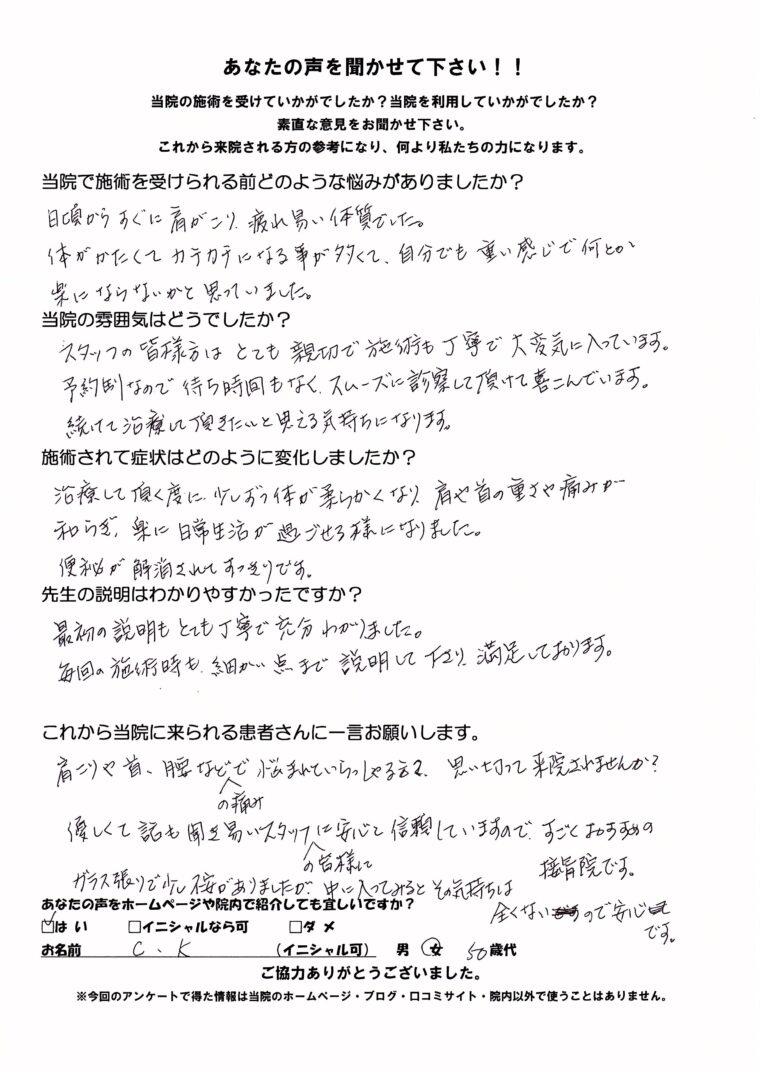 あなたの声を聞かせて下さい！！
当院の施術を受けていかがでしたか？当院を利用していかがでしたか？
素直な意見をお聞かせ下さい。
これから来院される方の参考になり、何より私たちの力になります。
当院で施術を受けられる前どのような悩みがありましたか？
日頃からすぐに肩がこり、疲れ易い体質でした。
体がかたくてカチカチになる事が多くて、自分でも重い感じで何とか
楽にならないかと思っていました。
当院の雰囲気はどうでしたか？
スタッフの皆様方はとても親切で施術も丁寧で大変気に入っています。
予約制なので待ち時間もなく、スムーズに診察して頂けて喜こんでいます。
続けて治療して頂きたいと思える気持ちになります。
施術されて症状はどのように変化しましたか？
治療して頂く度に、少しずつ体が柔らかくなり、肩や首の重さや痛みが
和らぎ、楽に日常生活が過ごせる様になりました。
便秘が解消されてすっきりです。
先生の説明はわかりやすかったですか？
最初の説明もとても丁寧で充分わかりました。
毎回の施術時も、細かい点まで説明して下さり、満足しております。
これから当院に来られる患者さんに一言お願いします。
肩こりや首、腰などで悩まれていらっしゃる方は、思い切って来院されませんか？
の痛み
優しくて話も聞き易いスタッフに安心と信頼していますので、すごくおすすめの
の皆様に
接骨院です。
ガラス張りで少し不安がありましたが、中に入ってみるとその気持ちは
全くないので安心
です。
あなたの声をホームページや院内で紹介しても宜しいですか？
☑はい □イニシャルなら可 □ダメ
お名前 C．K （イニシャル可） 男 ・ 女 50歳代
ご協力ありがとうございました。
※今回のアンケートで得た情報は当院のホームページ・ブログ・口コミサイト・院内以外で使うことはありません。